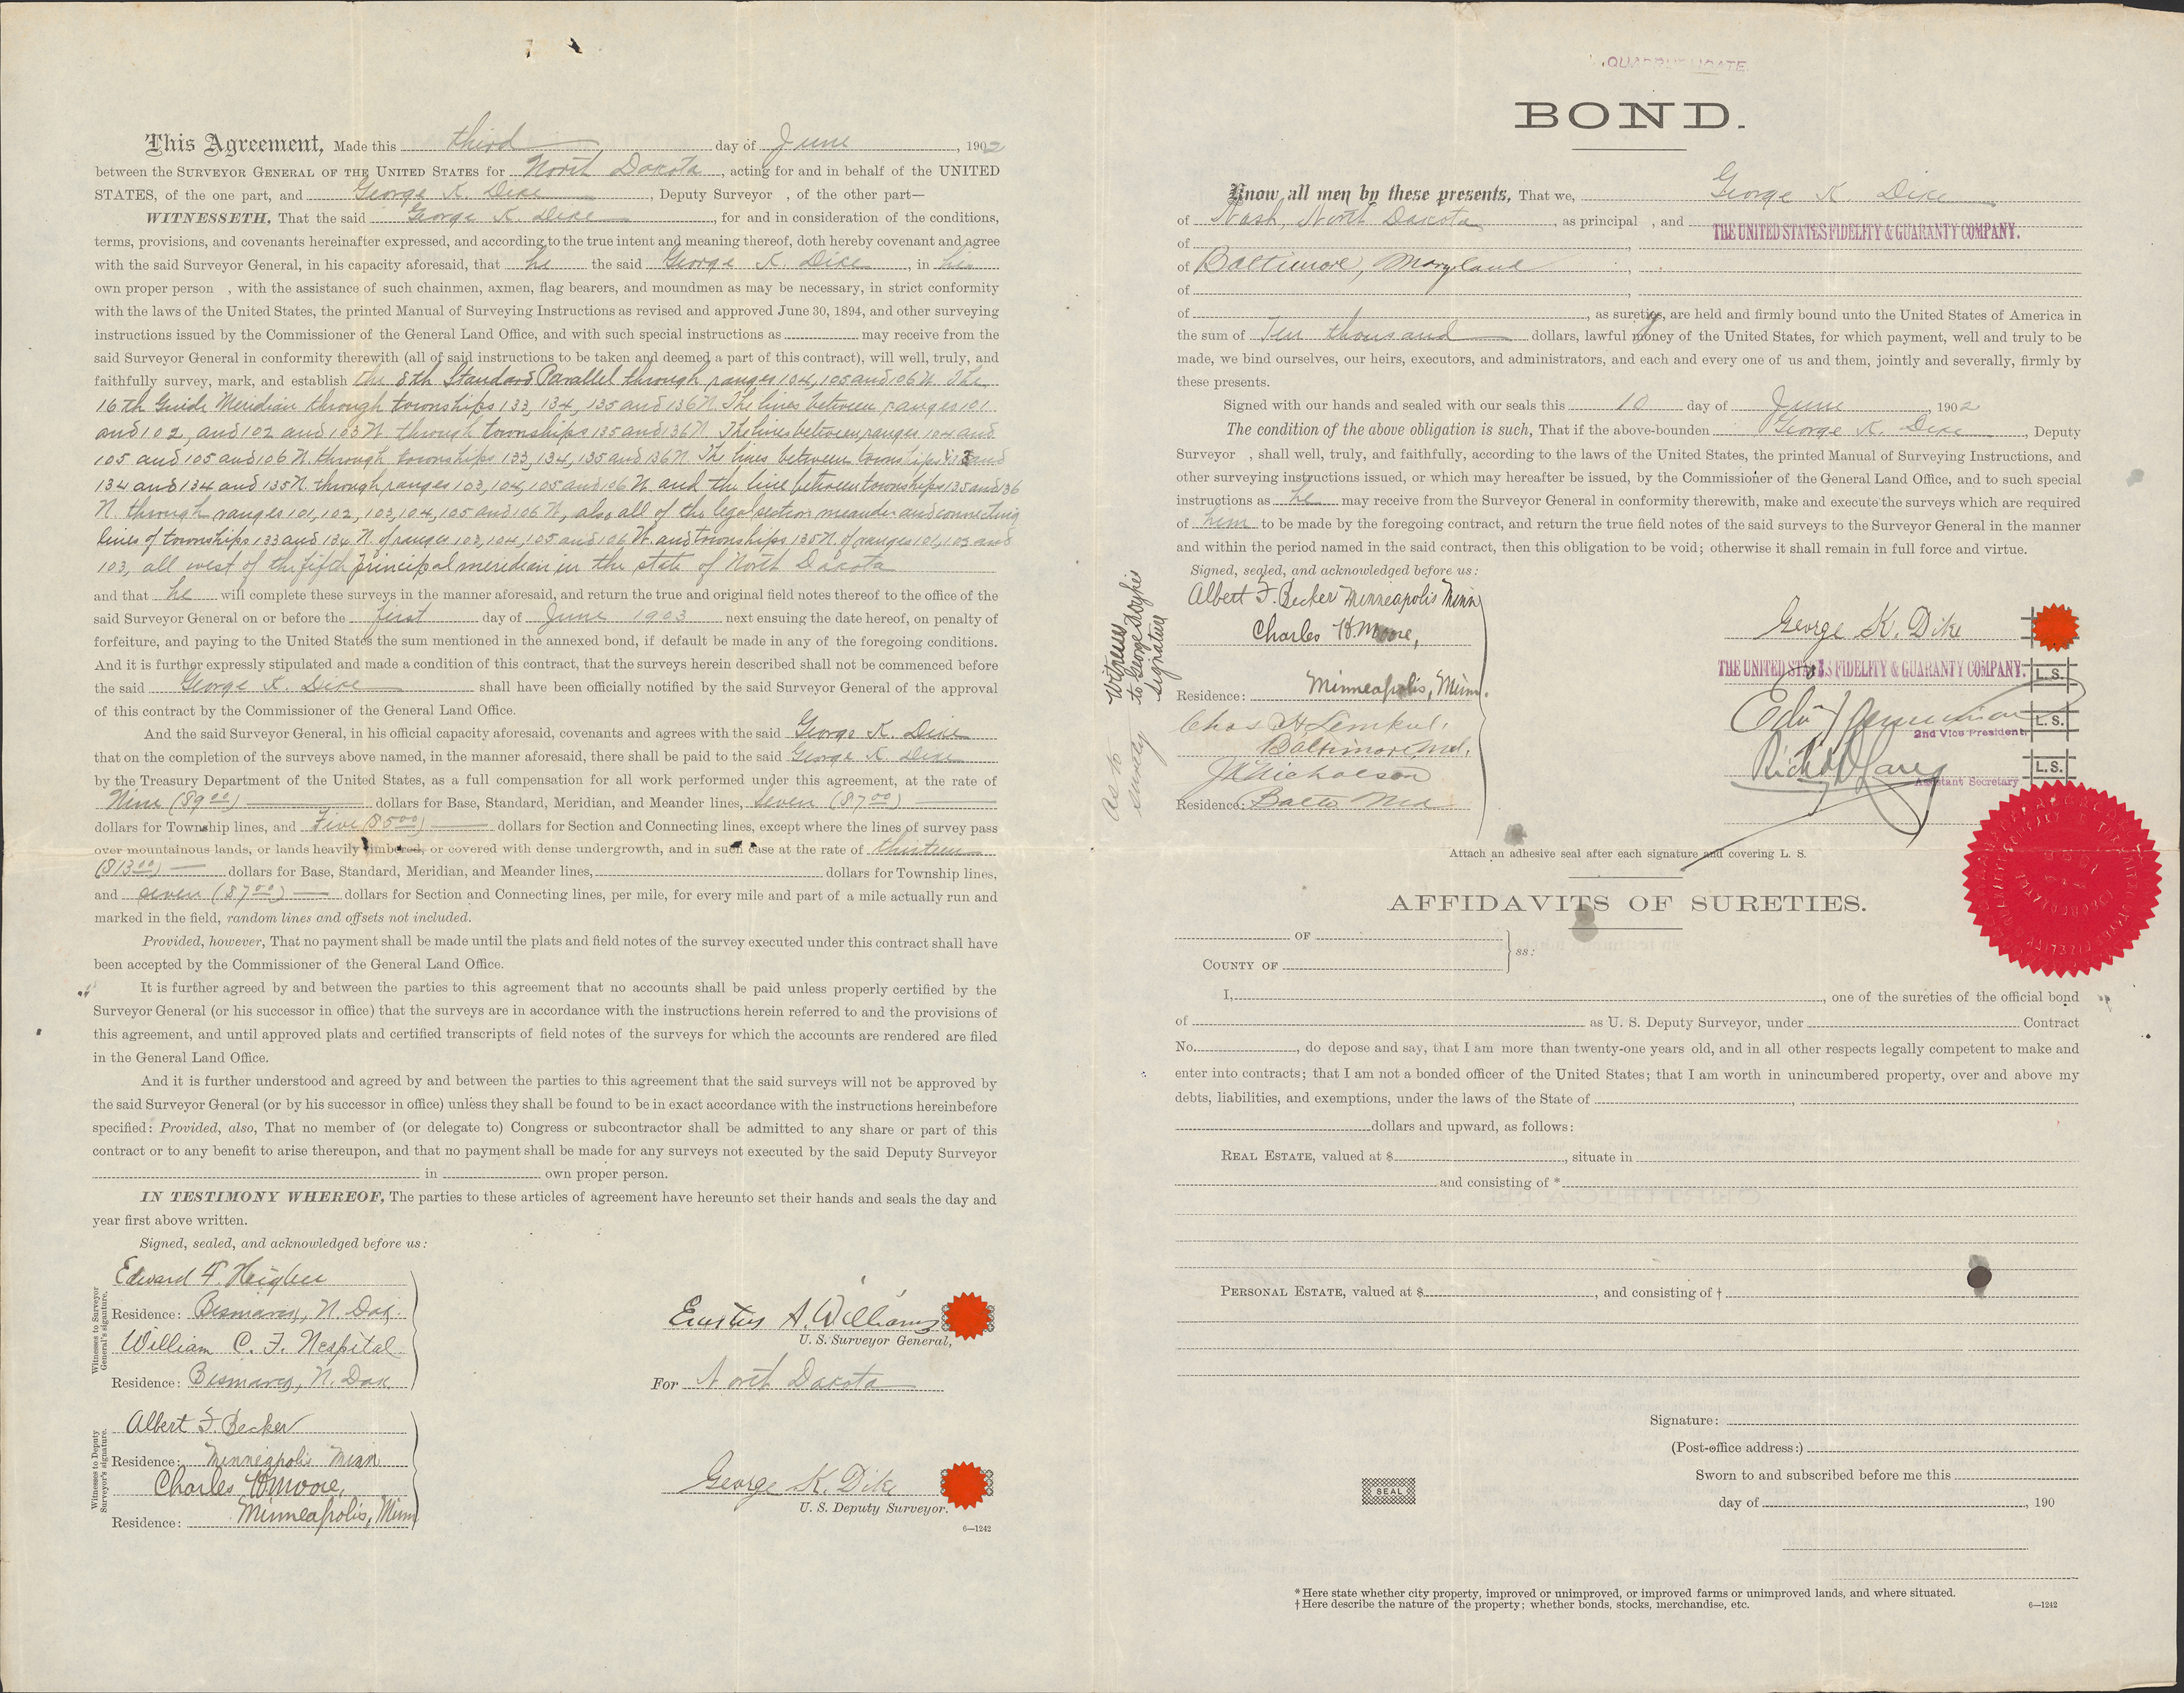 This Agreement, Made this third day of June, 1902
between the SURVEYOR GENERAL OF THE UNITED STATES for North Dakota, acting for and in behalf of the UNITED
STATES, of the one part, and George K. Dike, Deputy Surveyor , of the other part—
WITNESSETH, That the said George K. Dike, for and in consideration of the conditions,
terms, provisions, and covenants hereinafter expressed, and according to the true intent and meaning thereof, doth hereby covenant and agree
with the said Surveyor General, in his capacity aforesaid, that he the said George K. Dike, in his
own proper person , with the assistance of such chainmen, axmen, flag bearers, and moundmen as may be necessary, in strict conformity
with the laws of the United States, the printed Manual of Surveying Instructions as revised and approved June 30, 1894, and other surveying
instructions issued by the Commissioner of the General Land Office, and with such special instructions as may receive from the
said Surveyor General in conformity therewith (all of said instructions to be taken and deemed a part of this contract), will well, truly, and
faithfully survey, mark, and establish the 8th Standard Parallel through ranges 104, 105 and 106 W. The
16th Guide Meridian through townships 133, 134, 135 and 136 N. The lines between ranges 101
and 102, and 102 and 103 W. through townships 135 and 136 N. The lines between ranges 104 and
105 and 105 and 106 W. through townships 133, 134, 135 and 136 N. The lines between townships 133 and
134 and 134 and 135 N. through ranges 103, 104, 105 and 106 W. and the line between townships 135 and 136
N. through ranges 101, 102, 103, 104, 105 and 106 W, also all of the legal section meander and connecting
lines of townships 133 and 134 N. of ranges 103, 104, 105 and 106 W. and townships 135 N. of ranges 101, 102 and
103, all west of the fifth principal meridian in the state of North Dakota
and that he will complete these surveys in the manner aforesaid, and return the true and original field notes thereof to the office of the
said Surveyor General on or before the first day of June 1903 next ensuing the date hereof, on penalty of
forfeiture, and paying to the United States the sum mentioned in the annexed bond, if default be made in any of the foregoing conditions.
And it is further expressly stipulated and made a condition of this contract, that the surveys herein described shall not be commenced before
the said George K. Dike shall have been officially notified by the said Surveyor General of the approval
of this contract by the Commissioner of the General Land Office.
And the said Surveyor General, in his official capacity aforesaid, covenants and agrees with the said George K. Dike
that on the completion of the surveys above named, in the manner aforesaid, there shall be paid to the said George K Dike
by the Treasury Department of the United States, as a full compensation for all work performed under this agreement, at the rate of
Nine ($9.00) dollars for Base, Standard, Meridian, and Meander lines, Seven ($7.00)
dollars for Township lines, and Five ($5.00) dollars for Section and Connecting lines, except where the lines of survey pass
over mountainous lands, or lands heavily timbered, or covered with dense undergrowth, and in such case at the rate of thirteen
($13.00) dollars for Base, Standard, Meridian, and Meander lines, dollars for Township lines,
and seven ($7.00) dollars for Section and Connecting lines, per mile, for every mile and part of a mile actually run and
marked in the field, random lines and offsets not included.
Provided, however, That no payment shall be made until the plats and field notes of the survey executed under this contract shall have
been accepted by the Commissioner of the General Land Office.
It is further agreed by and between the parties to this agreement that no accounts shall be paid unless properly certified by the
Surveyor General (or his successor in office) that the surveys are in accordance with the instructions herein referred to and the provisions of
this agreement, and until approved plats and certified transcripts of field notes of the surveys for which the accounts are rendered are filed
in the General Land Office.
And it is further understood and agreed by and between the parties to this agreement that the said surveys will not be approved by
the said Surveyor General (or by his successor in office) unless they shall be found to be in exact accordance with the instructions hereinbefore
specified: Provided, also, That no member of (or delegate to) Congress or subcontractor shall be admitted to any share or part of this
contract or to any benefit to arise thereupon, and that no payment shall be made for any surveys not executed by the said Deputy Surveyor
in own proper person.
IN TESTIMONY WHEREOF, The parties to these articles of agreement have hereunto set their hands and seals the day and
year first above written.
Signed, sealed, and acknowledged before us:
Witnesses to Surveyor General's signature.
Edward F.
Residence: Bismarck, N. Dak.
William C. F.
Residence: Bismarck, N. Dak
A. Williams
U. S. Surveyor General,
For North Dakota
Witnesses to Deputy Surveyor's signature.
Albert F. Becker
Residence: Minneapolis Minn
Charles H Moore,
Residence: Minneapolis, Minn
George K. Dike
U. S. Deputy Surveyor.
6—1242
QUADRUPLICATE.
BOND.
Know all men by these presents, That we, George K. Dike
of Nash, North Dakota, as principal , and THE UNITED STATES FIDELITY & GUARANTY COMPANY.
of
of Baltimore, Maryland,
of
of , as surety, are held and firmly bound unto the United States of America in
the sum of Ten thousand dollars, lawful money of the United States, for which payment, well and truly to be
made, we bind ourselves, our heirs, executors, and administrators, and each and every one of us and them, jointly and severally, firmly by
these presents.
Signed with our hands and sealed with our seals this 10 day of June, 1902
The condition of the above obligation is such, That if the above-bounden George K. Dike, Deputy
Surveyor , shall well, truly, and faithfully, according to the laws of the United States, the printed Manual of Surveying Instructions, and
other surveying instructions issued, or which may hereafter be issued, by the Commissioner of the General Land Office, and to such special
instructions as he may receive from the Surveyor General in conformity therewith, make and execute the surveys which are required
of him to be made by the foregoing contract, and return the true field notes of the said surveys to the Surveyor General in the manner
and within the period named in the said contract, then this obligation to be void; otherwise it shall remain in full force and virtue.
Signed, sealed, and acknowledged before us:
Witnesses
to George Dyke's
signature
Albert F. Becker Minneapolis Minn
Charles H. Moore,
Residence: Minneapolis, Minn.
As to
surety
Chas H
Baltimore, Md.
J. Nicholson
Residence: Balto Md
George K. Dike
THE UNITED STATES FIDELITY & GUARANTY COMPANY.
L. S.
L. S.
2nd Vice President
L. S.
Assistant Secretary
Attach an adhesive seal after each signature and covering L. S.
AFFIDAVITS OF SURETIES.
OF
COUNTY OF
ss:
I, , one of the sureties of the official bond
of as U. S. Deputy Surveyor, under Contract
No. , do depose and say, that I am more than twenty-one years old, and in all other respects legally competent to make and
enter into contracts; that I am not a bonded officer of the United States; that I am worth in unincumbered property, over and above my
debts, liabilities, and exemptions, under the laws of the State of ,
dollars and upward, as follows:
REAL ESTATE, valued at $ , situate in
and consisting of *
PERSONAL ESTATE, valued at $ , and consisting of †
Signature:
(Post-office address:)
Sworn to and subscribed before me this
day of , 190
SEAL
* Here state whether city property, improved or unimproved, or improved farms or unimproved lands, and where situated.
† Here describe the nature of the property; whether bonds, stocks, merchandise, etc.
6—1242